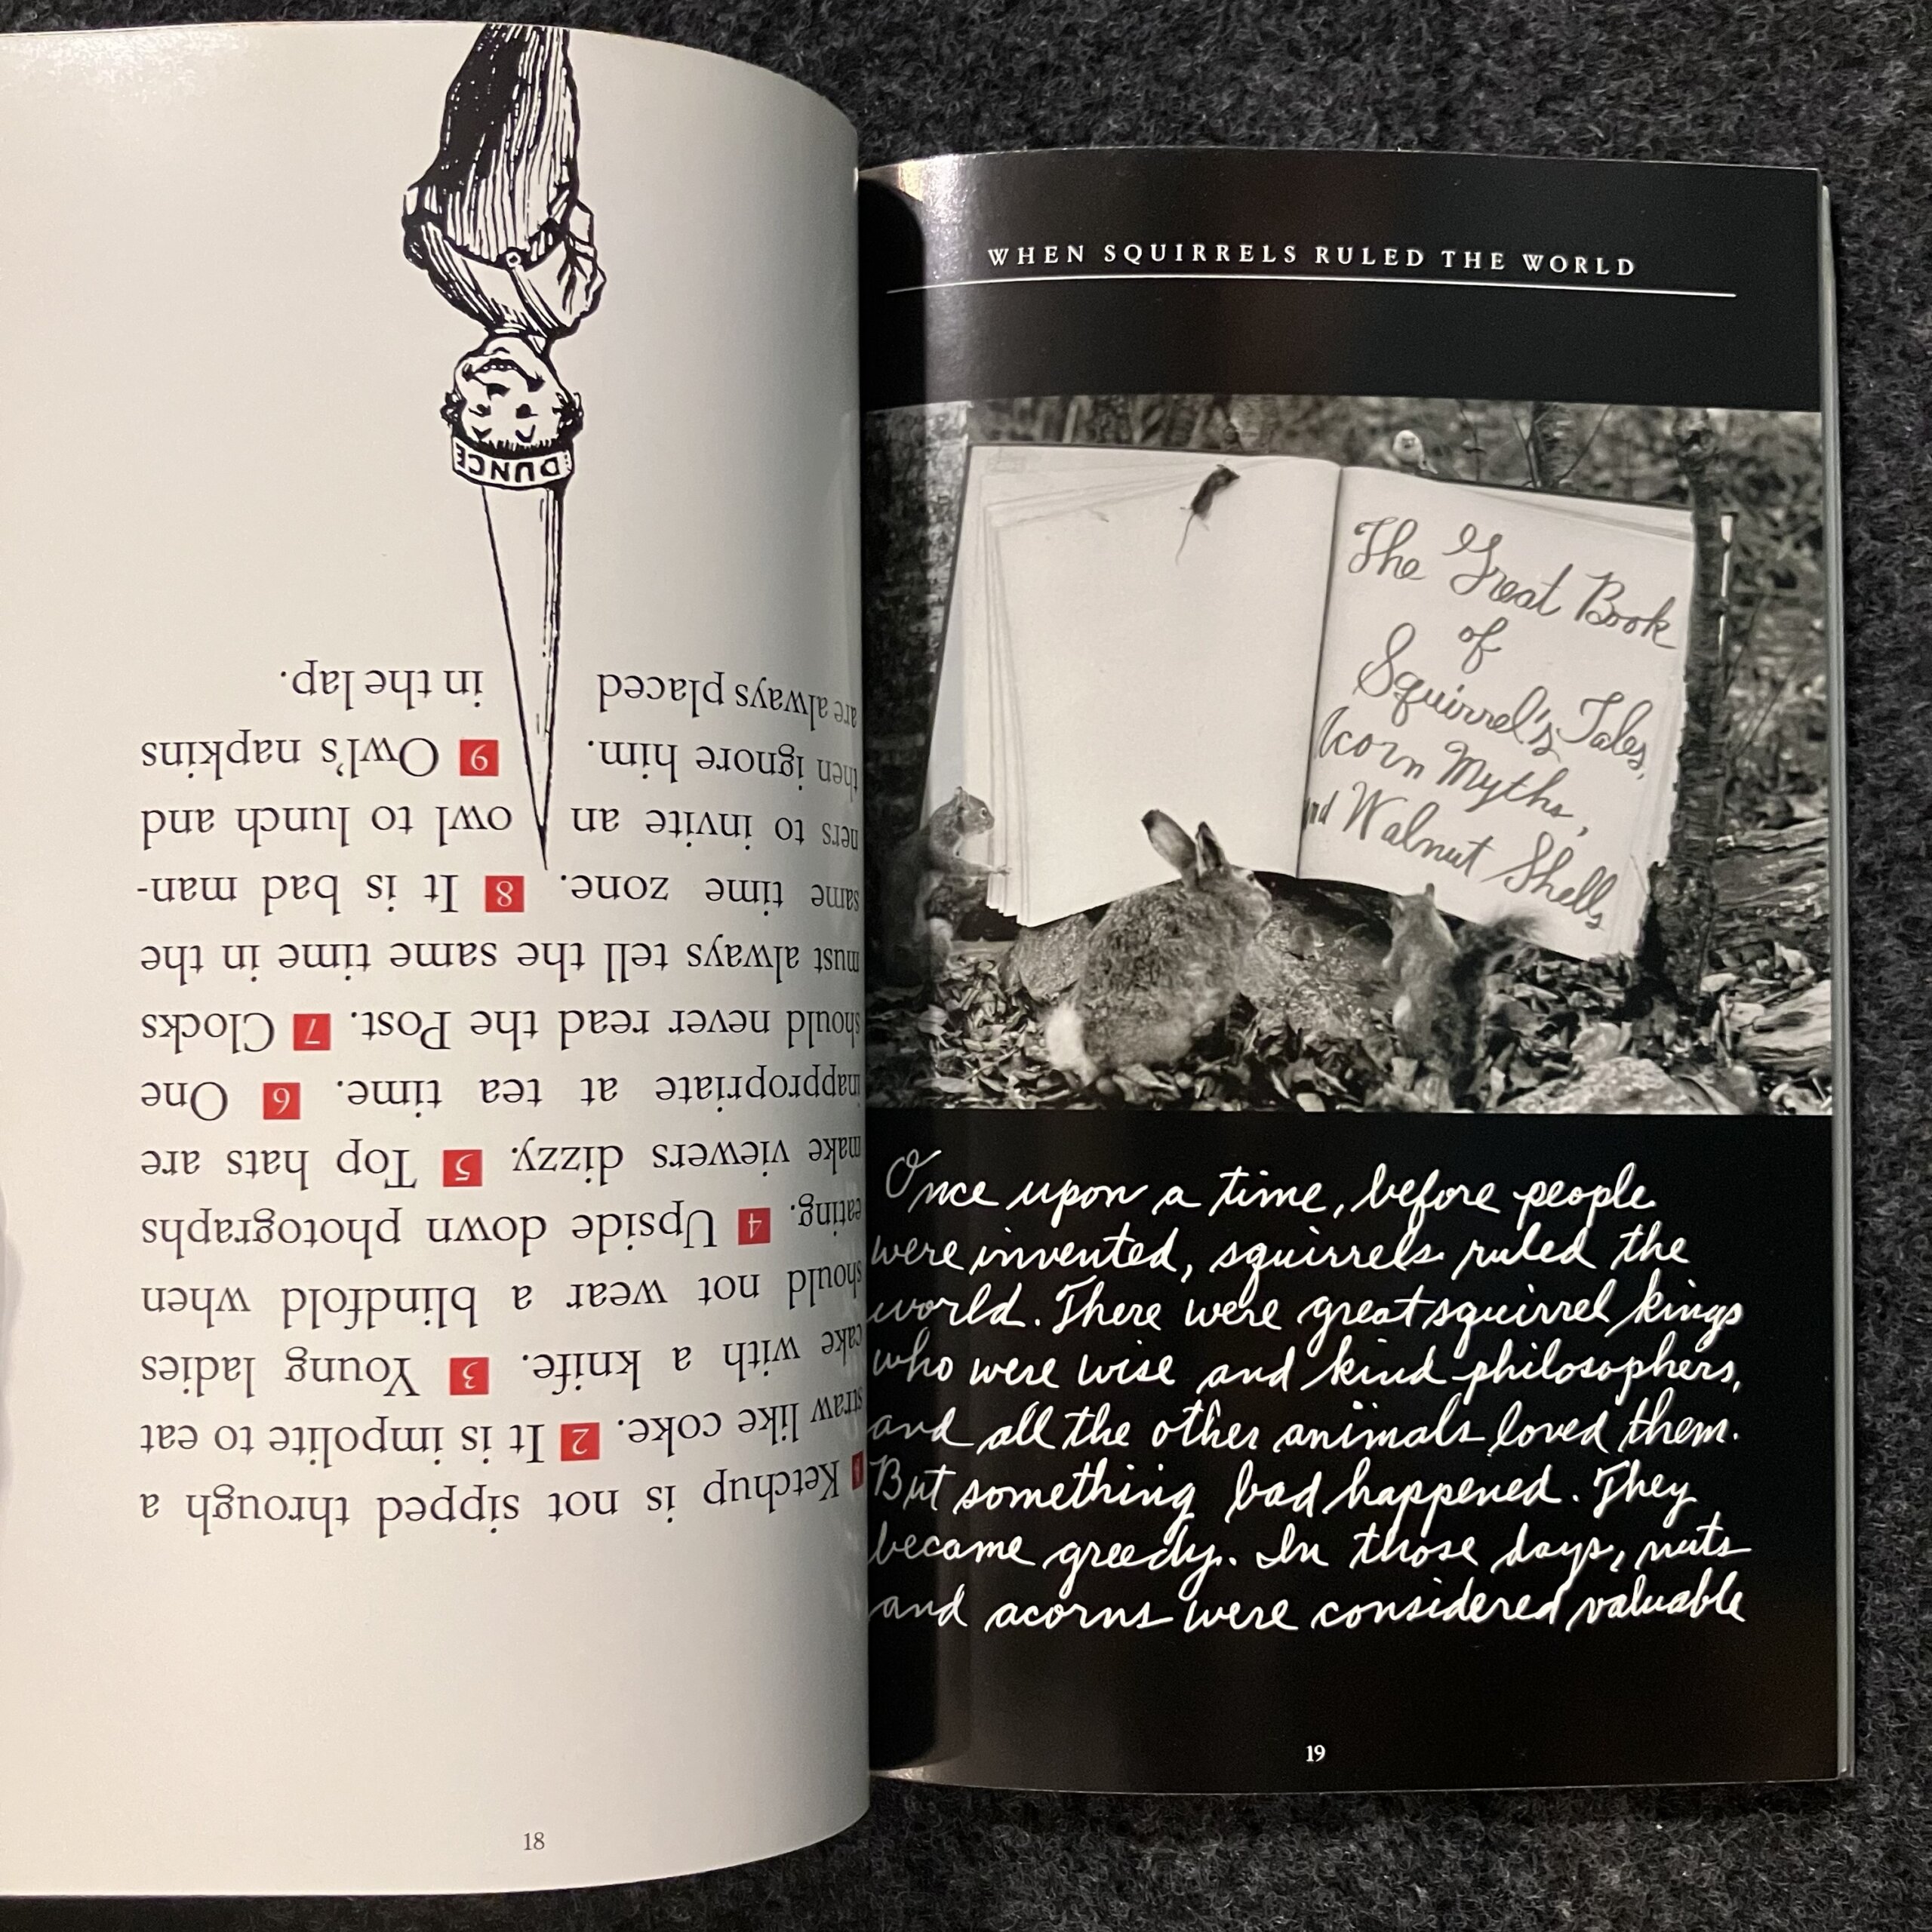 1 Ketchup is not sipped through a
straw like coke. 2 It is impolite to eat
cake with a knife. 3 Young ladies
should not wear a blindfold when
eating. 4 Upside down photographs
make viewers dizzy. 5 Top hats are
inappropriate at tea time. 6 One
should never read the Post. 7 Clocks
must always tell the same time in the
same time zone. 8 It is bad man-
ners to invite an owl to lunch and
then ignore him. 9 Owl's napkins
are always placed in the lap.
DUNCE
18
WHEN SQUIRRELS RULED THE WORLD
The Great Book
of
Squirrel's Tales,
Acorn Myths,
and Walnut Shells
Once upon a time, before people
were invented, squirrels ruled the
world. There were great squirrel kings
who were wise and kind philosophers,
and all the other animals loved them.
But something bad happened. They
became greedy. In those days, nuts
and acorns were considered valuable
19